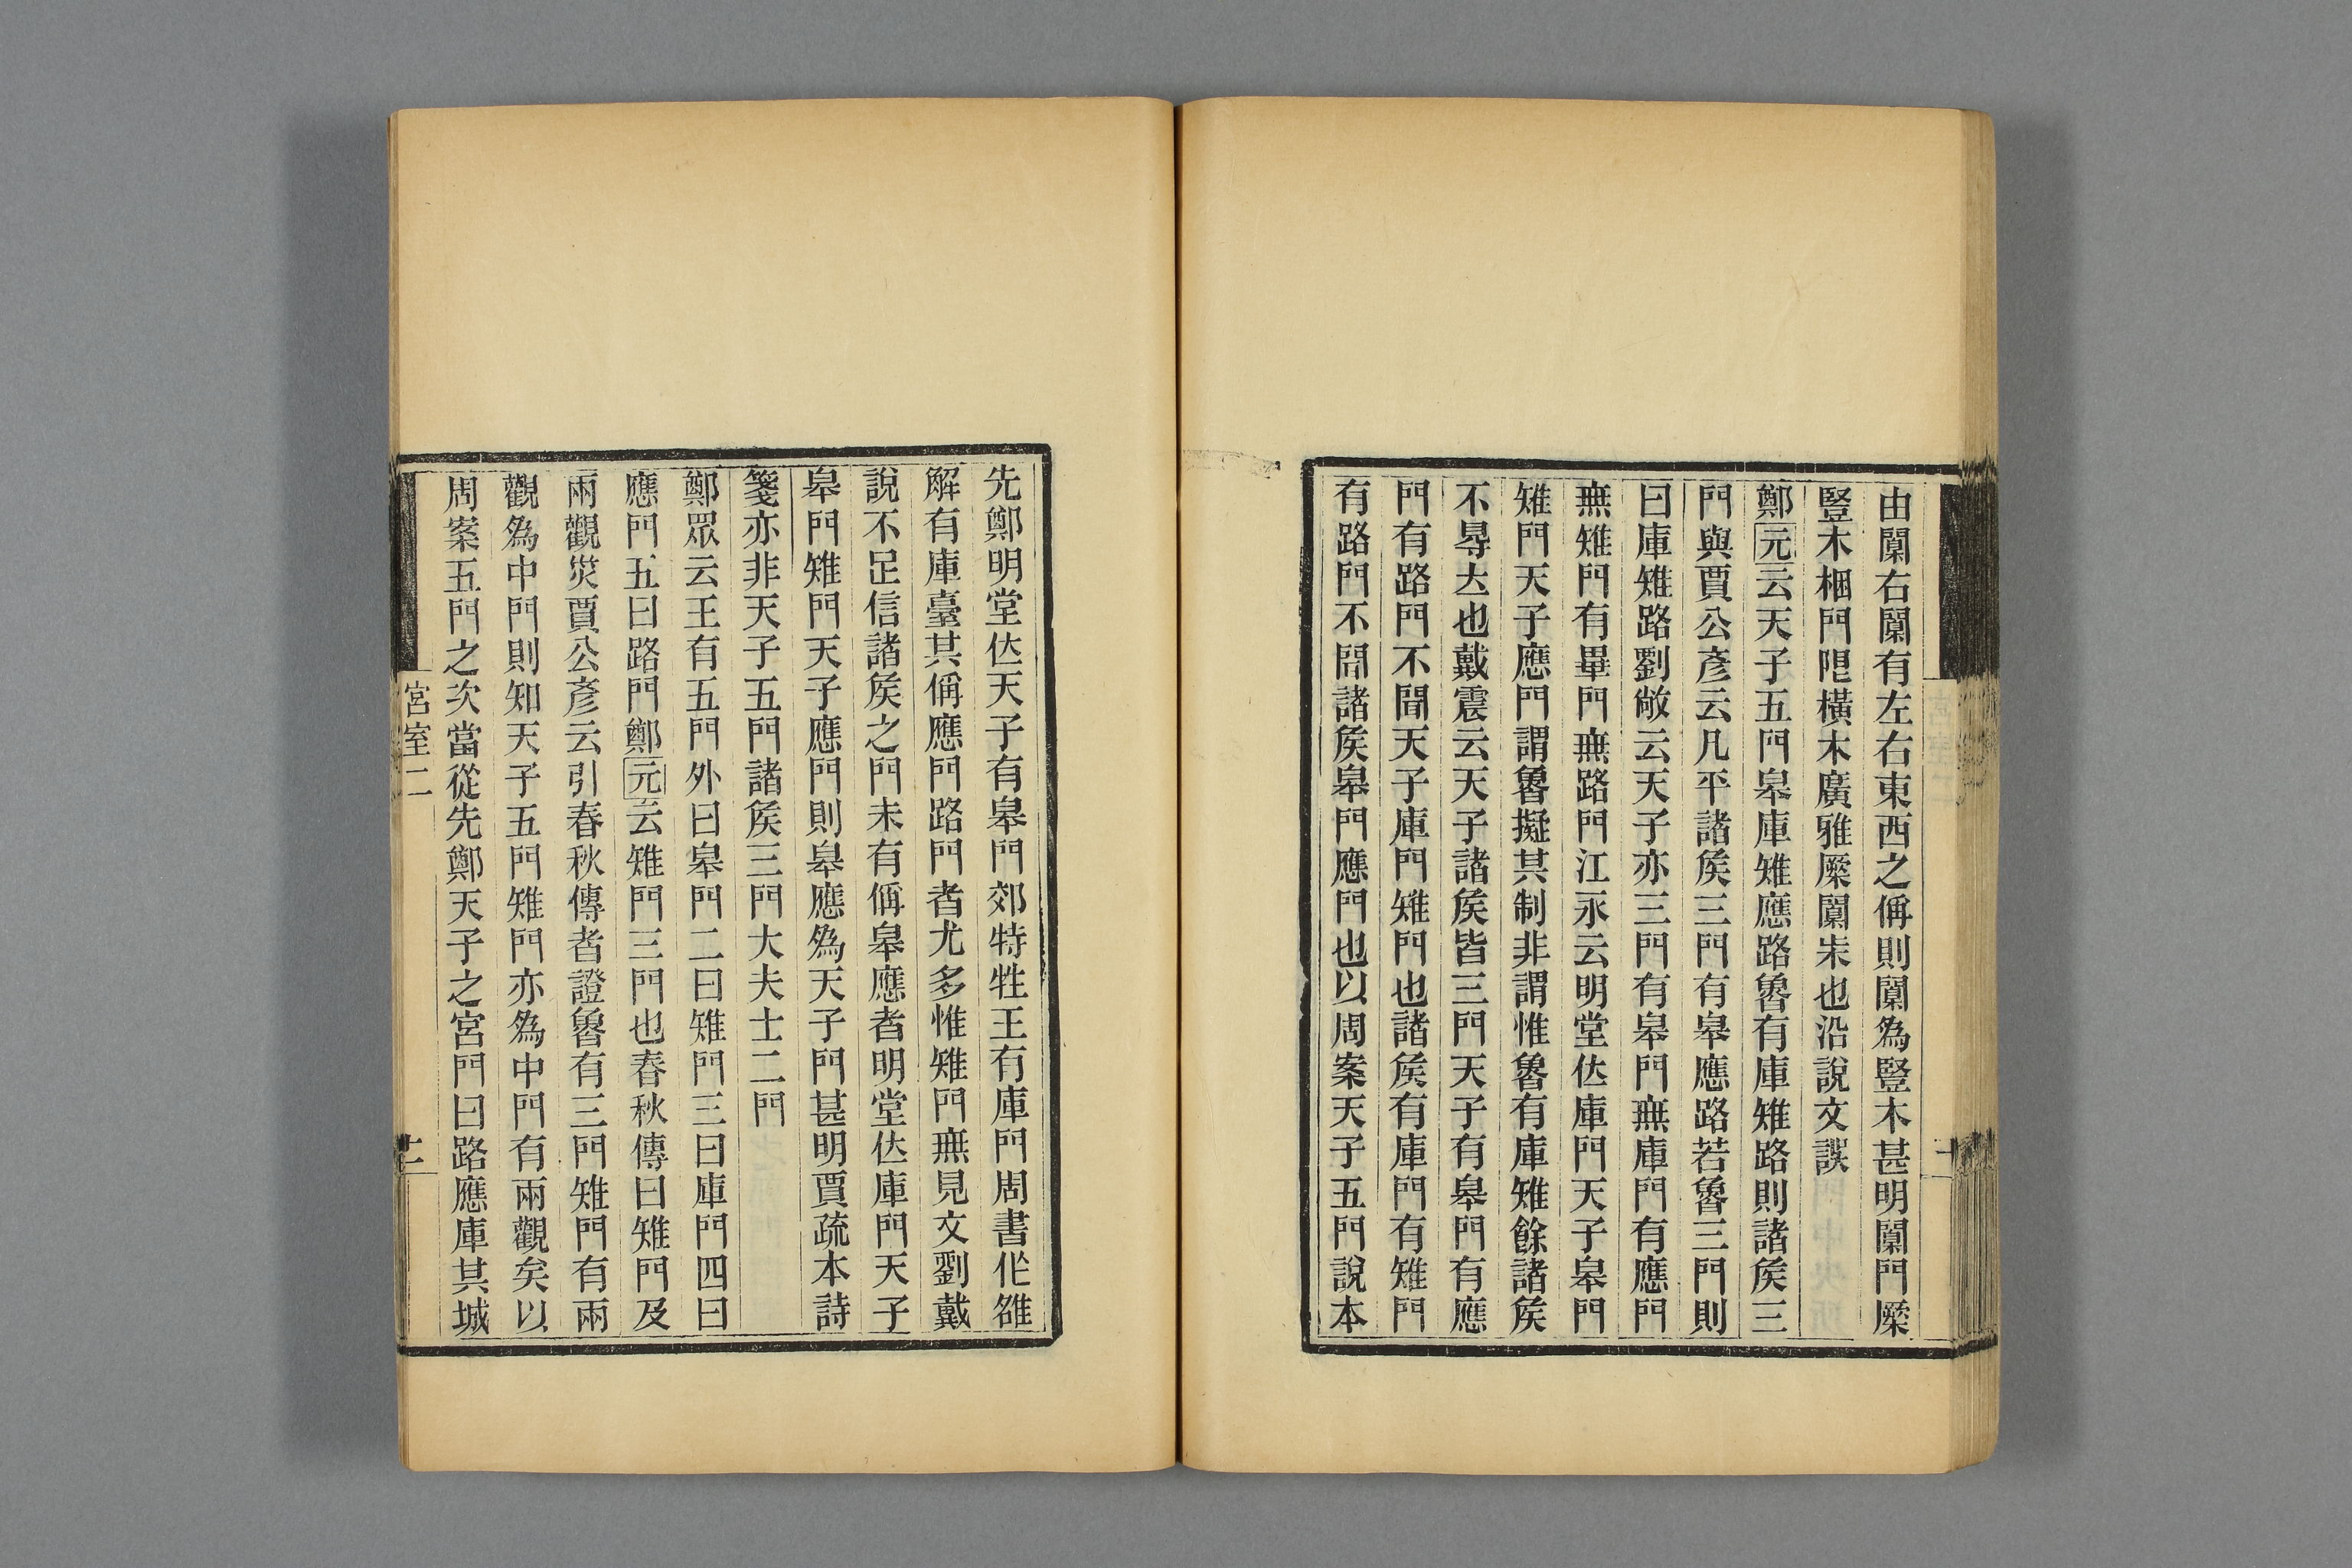 由闑右闑有左右東西之偁則闑為豎木甚明闑門橜
豎木梱門限橫木廣雅橜闑朱也沿說文誤
鄭元云天子五門皋庫雉應路魯有庫雉路則諸矦三
門與賈公彥云凡平諸矦三門有皋應路若魯三門則
曰庫雉路劉敞云天子亦三門有皋門無庫門有應門
無雉門有畢門無路門江永云明堂位庫門天子皋門
雉門天子應門謂魯擬其制非謂惟魯有庫雉餘諸矦
不㝵大也戴震云天子諸矦皆三門天子有皋門有應
門有路門不聞天子庫門雉門也諸矦有庫門有雉門
有路門不聞諸矦皋門應門也以周案天子五門說本
先鄭明堂位天子有皋門郊特牲王有庫門周書作雒
解有庫臺其偁應門路門者尤多惟雉門無見文劉戴
說不足信諸矦之門未有偁皋應者明堂位庫門天子
皋門雉門天子應門則皋應為天子門甚明賈疏本詩
箋亦非天子五門諸矦三門大夫士二門
鄭眾云王有五門外曰皋門二曰雉門三曰庫門四曰
應門五曰路門鄭元云雉門三門也春秋傳曰雉門及
兩觀災賈公彥云引春秋傳者證魯有三門雉門有兩
觀為中門則知天子五門雉門亦為中門有兩觀矣以
周案五門之次當從先鄭天子之宮門曰路應庫其城
宮室二
十二